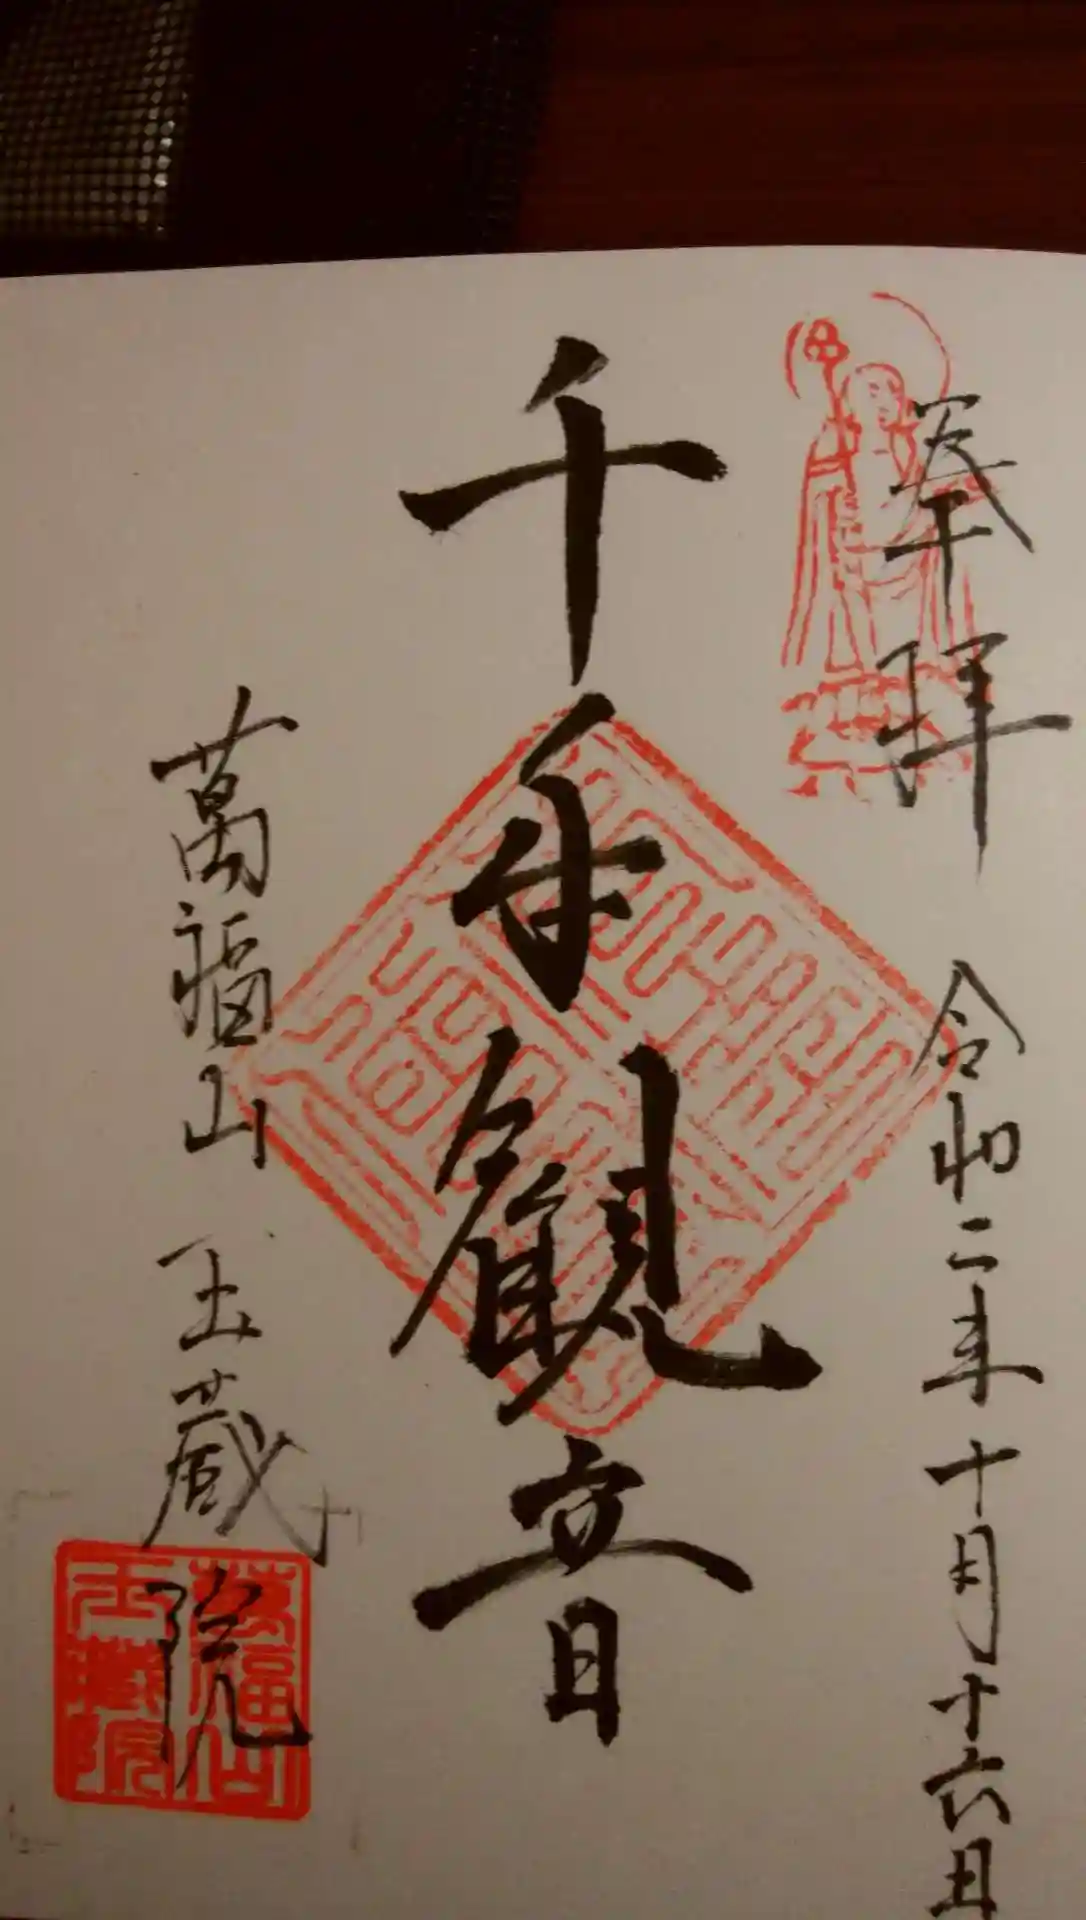 奉拝
令和二年十月十六日
千手観音
萬福山 玉蔵院
萬福山
玉蔵院